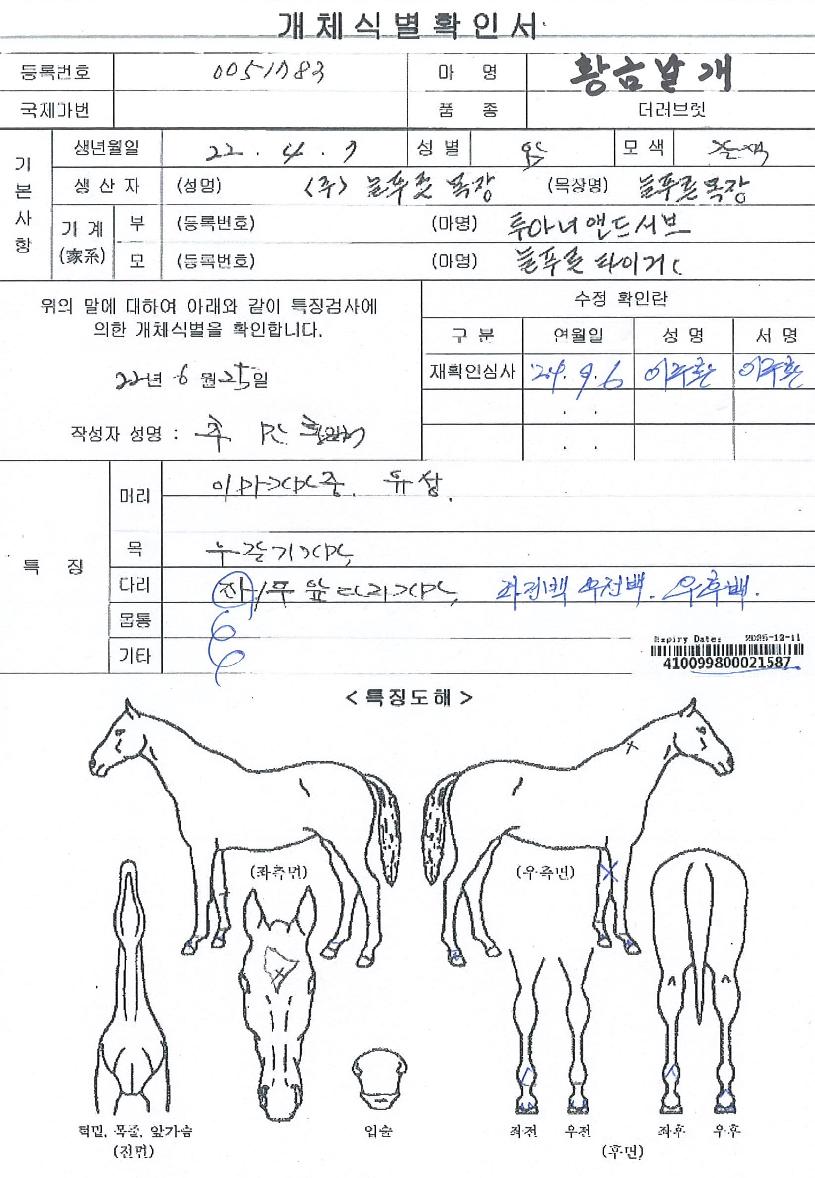 개체식별확인서
등록번호 0051783 마 명 황금날개
국제마번 품 종 더러브렛
기본사항
생년월일 22 . 4 . 7 성 별 암 모 색
생 산 자 (성명) (주) 늘푸른 목장 (목장명) 늘푸른목장
기 계 (家系)
부 (등록번호) (마명) 투아너앤드서브
모 (등록번호) (마명) 늘푸른타이거
위의 말에 대하여 아래와 같이 특징검사에
의한 개체식별을 확인합니다.
22년 6 월 25일
작성자 성명 :
수정 확인란
구 분 연월일 성 명 서 명
재확인심사 '24. 9. 6
. .
. .
특 징
머리 이마가마중. 유성.
목 누갈기가마
다리 좌/우 앞다리가마 좌전백 우전백. 우후백.
몸통
기타
Expiry Date: 2025-12-11
410099800021587
< 특징도해 >
(좌측면) (우측면)
턱밑, 목줄, 앞가슴 입술 좌전 우전 좌후 우후
(전면) (후면)